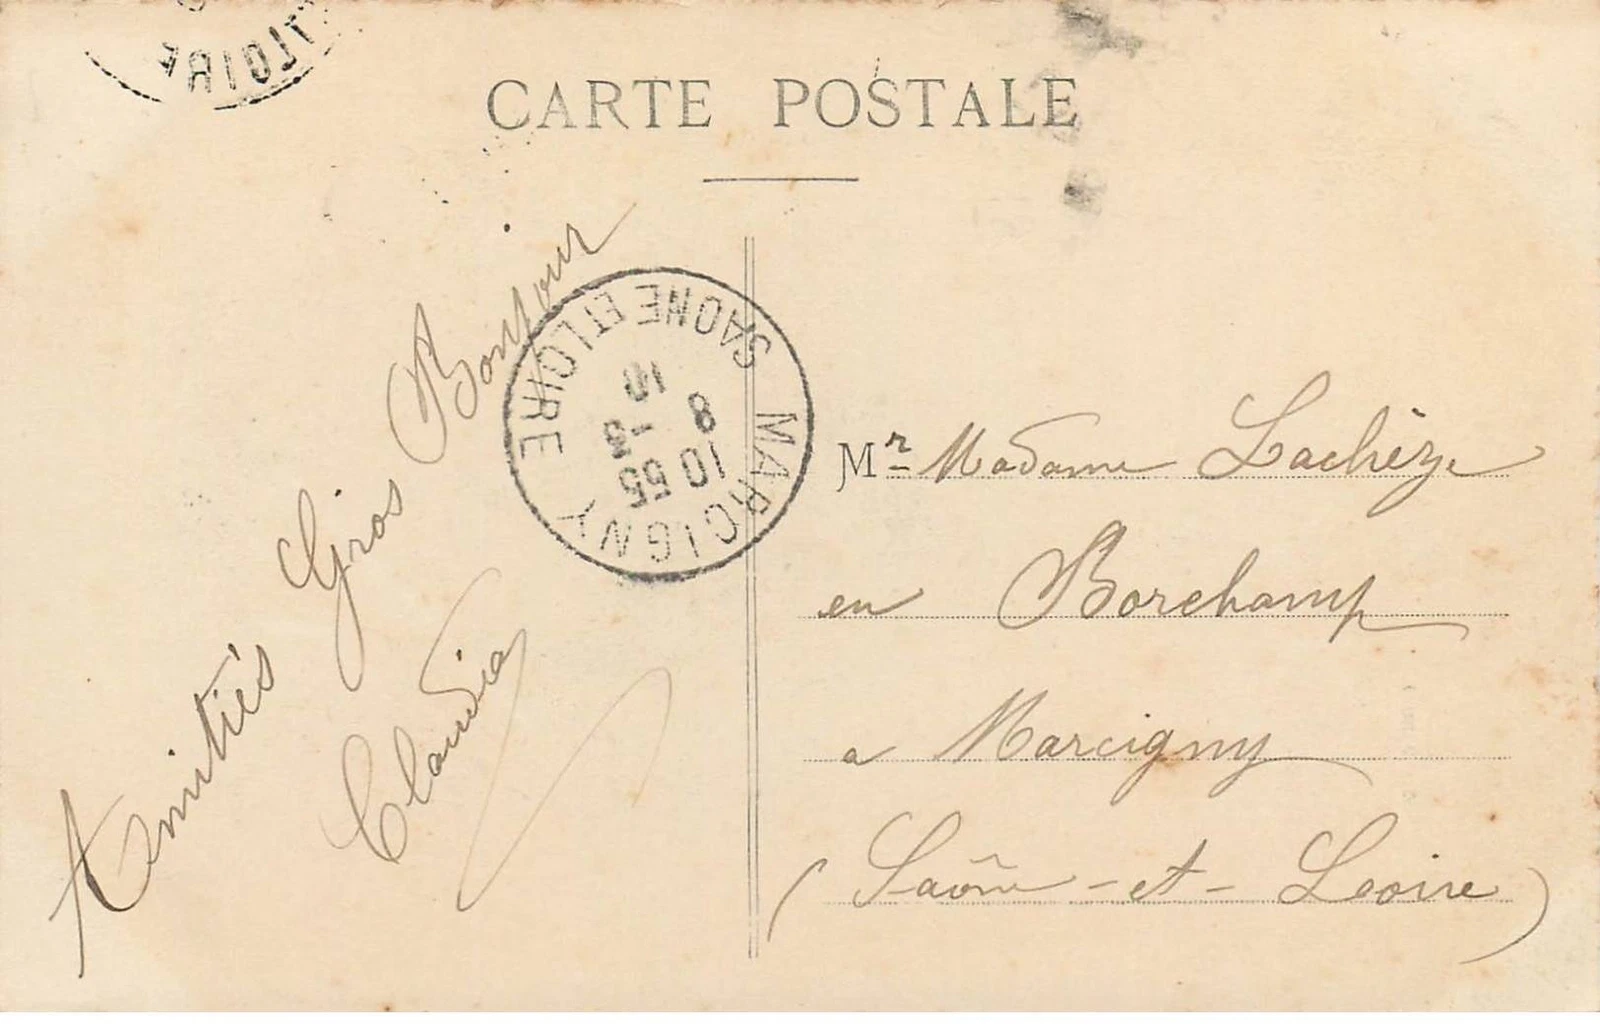 CARTE POSTALE
Amitiés Gros Bonjour
Claudia
MARCIGNY
SAONE ET LOIRE
10 55
8 - 3
10
Mr Madame Lachèze
en Borchamp
a Marcigny
(Saône-et-Loire)
LOIRE